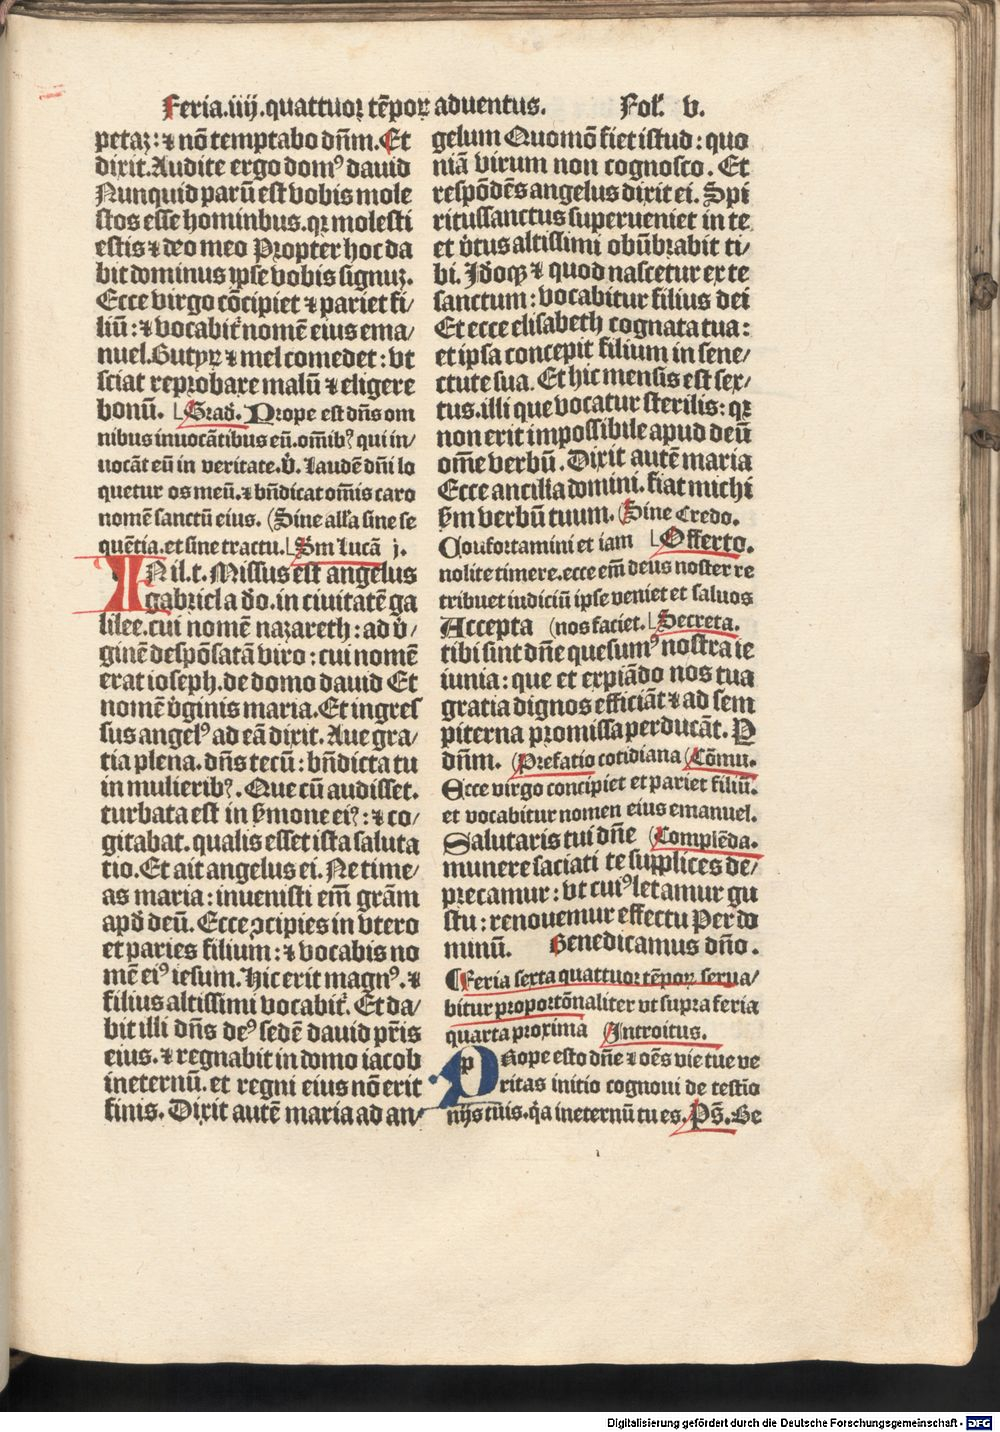 Feria.iiij.quattuoꝛ tẽpoꝝ aduentus. Fol. v.
petaꝫ: ⁊ nõ temptabo dñm. Et
dixit. Audite ergo domꝰ dauid
Nunquid parũ est vobis mole
stos esse hominbus. qꝛ molesti
estis ⁊ deo meo Propter hoc da
bit dominus ipse vobis signuꝫ.
Ecce virgo cõcipiet ⁊ pariet fi/
liũ: ⁊ vocabit᷑ nomẽ eius ema/
nuel. Butyꝝ ⁊ mel comedet: vt
sciat reprobare malũ ⁊ eligere
bonũ. Grad̃. Prope est dñs om
nibus inuocãtibus eũ. om̃ibꝰ qui in/
uocãt eũ in veritate. v̾. Laudẽ dñi lo
quetur os meũ. ⁊ bñdicat om̃is caro
nomẽ sanctũ eius. (Sine all'a sine se
quẽtia. et sine tractu. Sm̃ Lucã j.
IN il. t. Missus est angelus
gabriel a do. in ciuitatẽ ga
lilee. cui nomẽ nazareth: ad v̾/
ginẽ despõsatã viro: cui nomẽ
erat ioseph. de domo dauid Et
nomẽ v̾ginis maria. Et ingres
sus angelꝰ ad eã dixit. Aue gra/
tia plena. dñs tecũ: bñdicta tu
in mulieribꝰ. Que cũ audisset.
turbata est in s̾mone eiꝰ: ⁊ co/
gitabat. qualis esset ista saluta
tio. Et ait angelus ei. Ne time/
as maria: inuenisti em̃ grãm
apd̾ deũ. Ecce ↄcipies in vtero
et paries filium: ⁊ vocabis no
mẽ eiꝰ iesum. Hic erit magnꝰ. ⁊
filius altissimi vocabit᷑. Et da/
bit illi dñs deꝰ sedẽ dauid pr̃is
eius. ⁊ regnabit in domo iacob
in eternũ. et regni eius nõ erit
finis. Dixit autẽ maria ad an/
gelum Quomõ fiet istud: quo
niã virum non cognosco. Et
respõdẽs angelus dixit ei. Spi
ritussanctus superueniet in te
et v̾tus altissimi obũbrabit ti/
bi. Idoqꝫ ⁊ quod nascetur ex te
sanctum: vocabitur filius dei
Et ecce elisabeth cognata tua:
et ipsa concepit filium in sene/
ctute sua. Et hic mensis est sex/
tus. illi que vocatur sterilis: qꝛ
non erit impossibile apud deũ
om̃e verbũ. Dixit autẽ maria
Ecce ancilla domini. fiat michi
s̾m verbũ tuum. (Sine Credo.
Confortamini et iam Offerto.
nolite timere. ecce em̃ deus noster re
tribuet iudiciũ ipse veniet et saluos
Accepta (nos faciet. Secreta.
tibi sint dñe quesumꝰ nostra ie
iunia: que et expiãdo nos tua
gratia dignos efficiãt ⁊ ad sem
piterna promissa perducãt. P
dñm. (Prefatio cotidiana (Cõmu.
Ecce virgo concipiet et pariet filiũ.
et vocabitur nomen eius emanuel.
Salutaris tui dñe (Complẽda.
munere saciati te supplices de/
precamur: vt cuiꝰ letamur gu
stu: renouemur effectu Per do
minũ. Benedicamus dño.
⸿Feria sexta quattuoꝛ tẽpoꝝ serua/
bitur proportõnaliter vt supra feria
quarta proxima (Introitus.
PRope esto dñe ⁊ oẽs vie tue ve
ritas initio cognoui de testĩo
nijs tuis. q̃a in eternũ tu es. Ps̃. Be
Digitalisierung gefördert durch die Deutsche Forschungsgemeinschaft - DFG